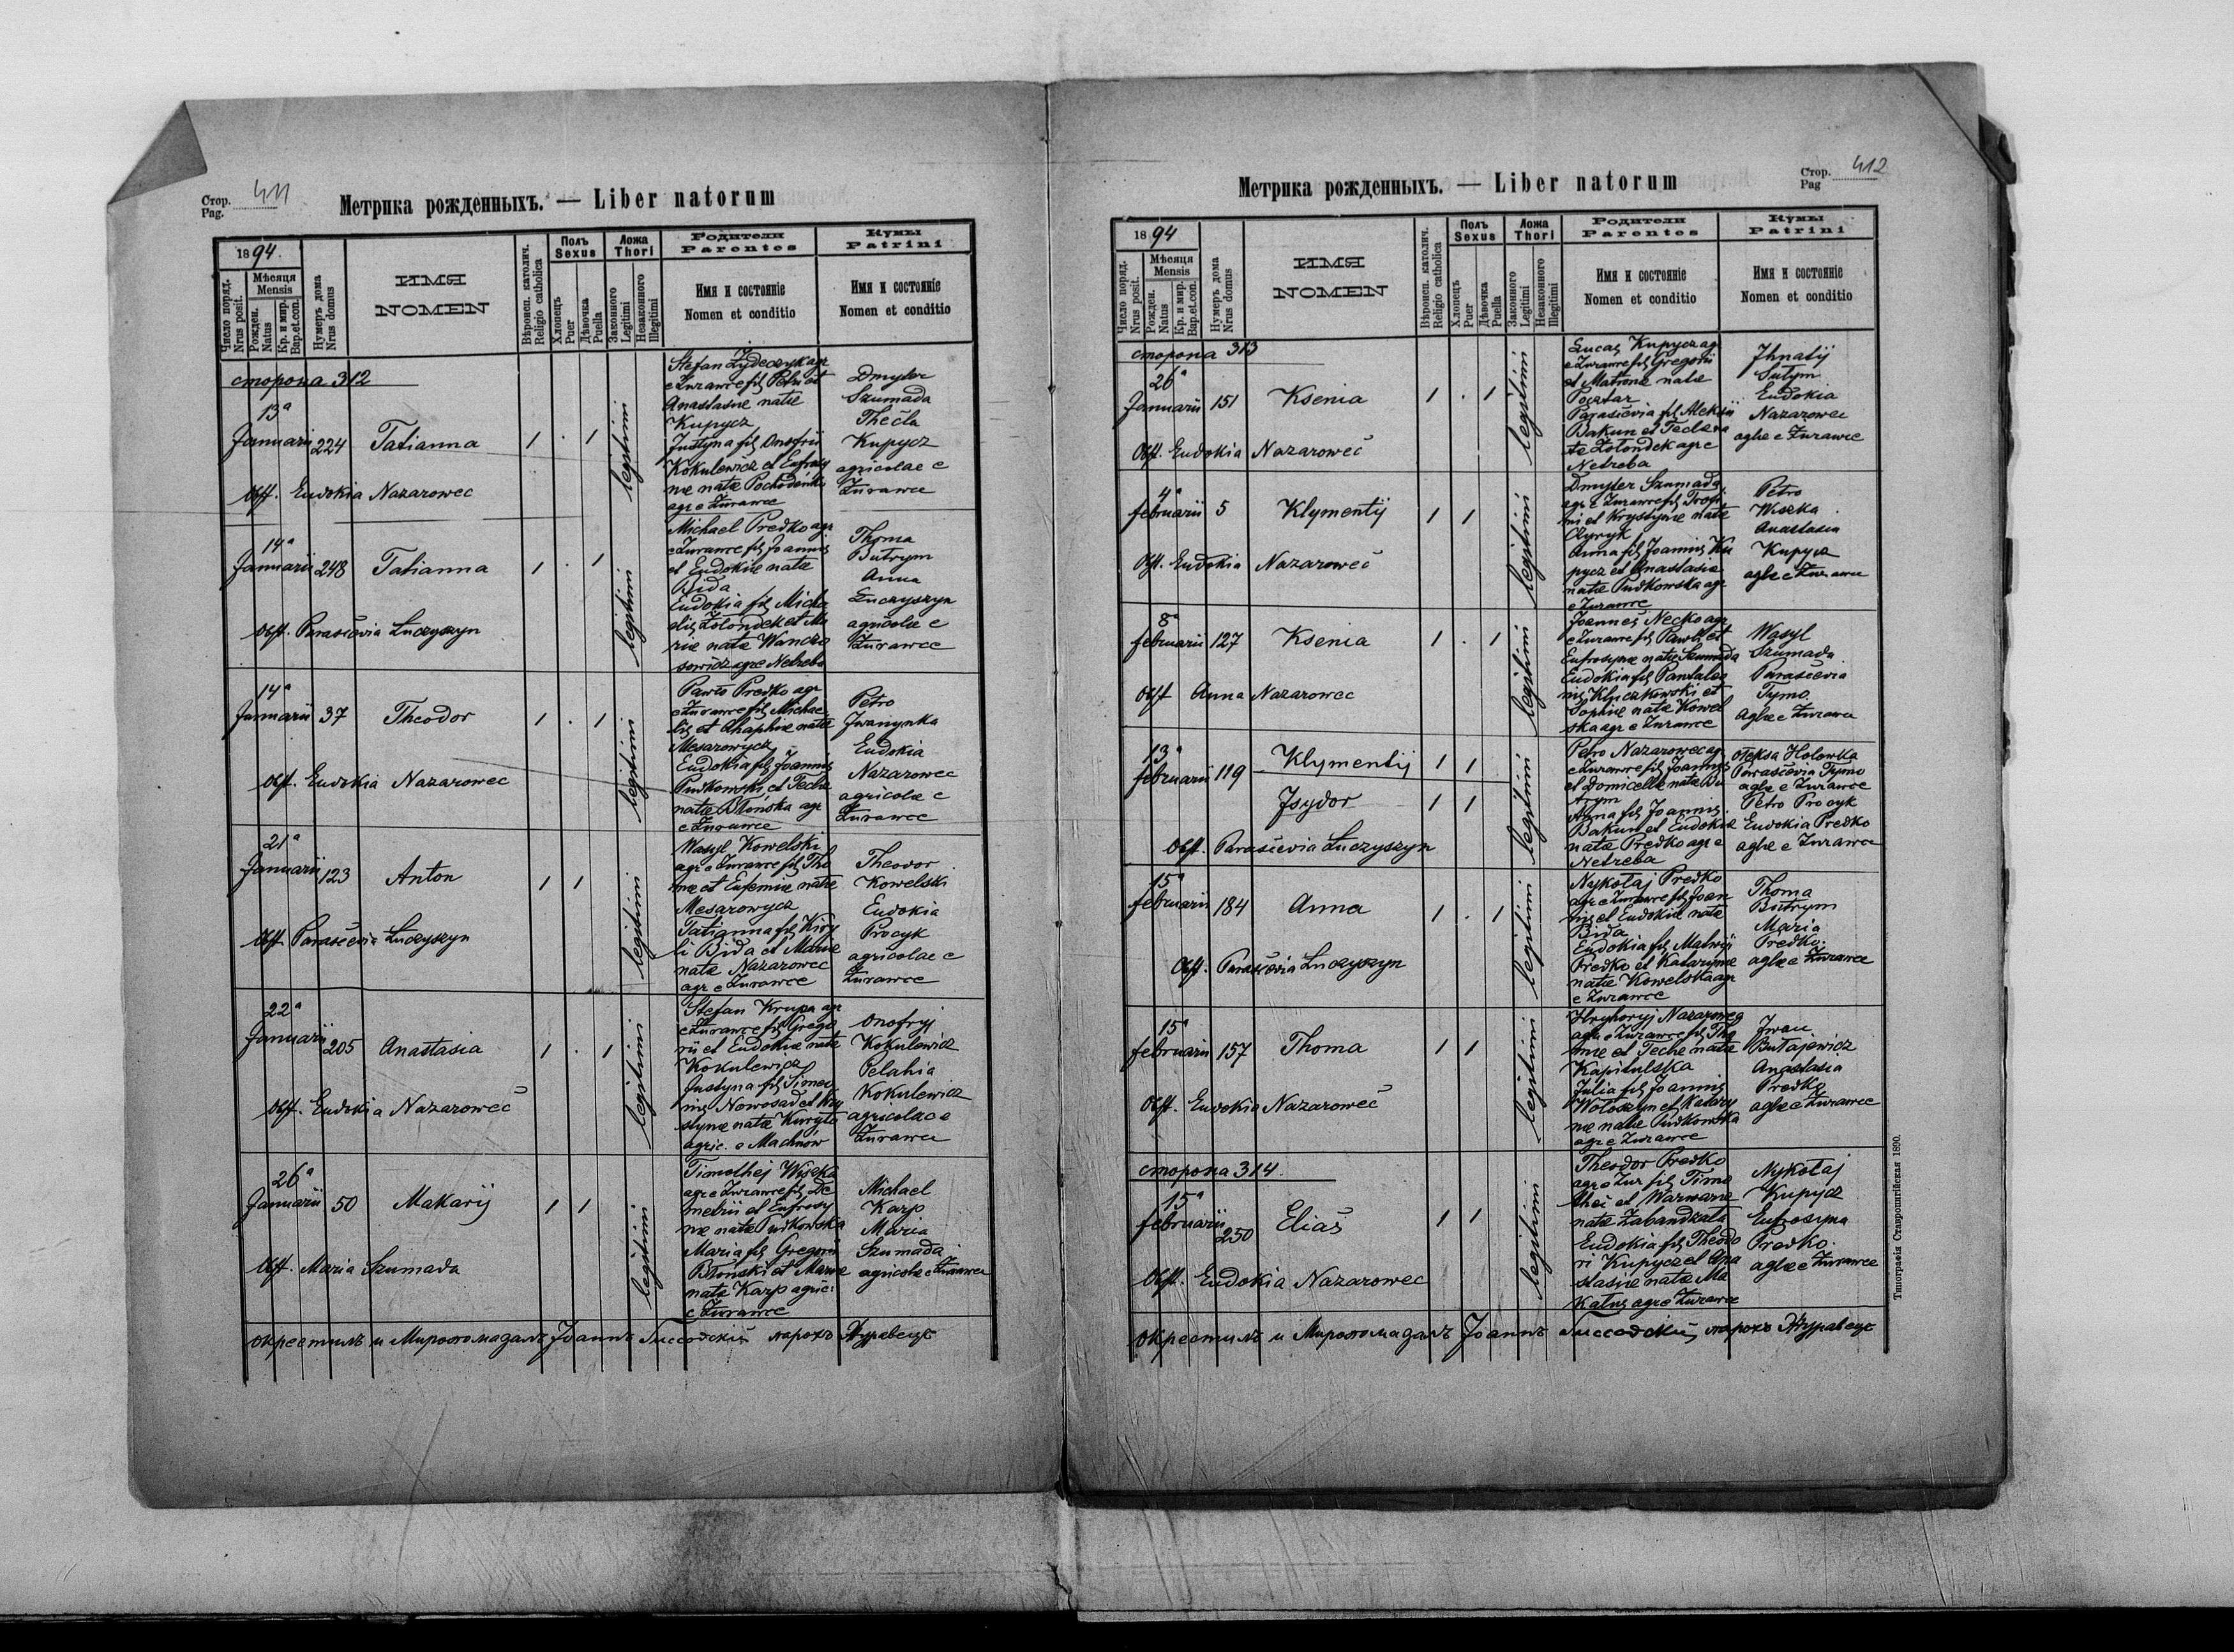 Стор.
Pag. 411
Метрика рожденныхъ. — Liber natorum
1894.
Число поряд.
Nrus posit.
Мѣсяця
Mensis
Рожден.
Natus
Кр. и мир.
Bap.et.con.
Нумеръ дома
Nrus domus
ИМЯ
NOMEN
Вѣроисп. католич.
Religio catholica
Полъ
Sexus
Хлопецъ
Puer
Дѣвочка
Puella
Ложа
Thori
Законного
Legitimi
Незаконного
Illegitimi
Родители
Parentes
Имя и состоянiе
Nomen et conditio
Кумы
Patrini
Имя и состоянiе
Nomen et conditio
сторона 312
13ª
Januarii 224 Tatianna 1 . 1
legitimi
Stefan Żydeczyk agr
e Żurawce fil Petri et
Anastasiæ natæ
Kupycz
Justyna fil Onofrii
Kokulewicz et Eufrosy
næ natæ
agr e Żurawce
Dmyter
Szumada
Thecla
Kupycz
agricolae e
Żurawce
Obst. Eudokia Nazarowec
14ª
Januarii 248 Tatianna 1 . 1
legitimi
Michael Predko agr
e Żurawce fil Joannis
et Eudokiæ natæ
Bida
Eudokia fil Micha
elis Żołondek et Ma
riæ natæ Wancza
sowicz agr e Netreba
Thoma
Butrym
Anna
Łuczyszyn
agricolæ e
Żurawce
Obst. Parascevia Łuczyszyn
14ª
Januarii 37 Theodor 1 . 1
legitimi
Pawło Predko agr
e Żurawce fil Michae
lis et Ahaphiæ natæ
Mesarowycz
Eudokia fil Joannis
Pudkowski et Teclæ
natæ Błońska agr
e Żurawce
Petro
Iwanynka
Eudokia
Nazarowec
agricolæ e
Żurawce
Obst. Eudokia Nazarowec
21ª
Januarii 123 Anton 1 1
legitimi
Wasyl Kowelski
agr e Żurawce fil Tho
mæ et Eufemiæ natæ
Mesarowycz
Tatianna fil Kiry
li Bida et Mariæ
natæ Nazarowec
agr e Żurawce
Theodor
Kowelski
Eudokia
Procyk
agricolae e
Żurawce
Obst Parascevia Łuczyszyn
22ª
Januarii 205 Anastasia 1 . 1
legitimi
Stefan Krupa agr
e Żurawce fil Grego
rii et Eudokiæ natæ
Kokulewicz
Justyna fil Simeo
nis Nowosad et Kry
stynæ natæ Kuryło
agric. e Machnów
Onofryj
Kokulewicz
Pelahia
Kokulewicz
agricolae e
Żurawce
Obst. Eudokia Nazarowec
26ª
Januarii 50 Makarij 1 1
legitimi
Timothej Wiszka
agr e Żurawce fil De
metrii et Eufrosy
næ natæ Pudkowska
Maria fil Gregorii
Błonski et Mariæ
natæ Karp agric:
e Żurawce
Michael
Karp
Maria
Szumada
agricolæ e Żurawce
Obst. Maria Szumada
окрестилъ и Миропомазалъ Іоаннъ парохъ Журавецъ
Стор.
Pag 412
Метрика рожденныхъ. — Liber natorum
1894
Число поряд.
Nrus posit.
Мѣсяця
Mensis
Рожден.
Natus
Кр. и мир.
Bap.et.con.
Нумеръ дома
Nrus domus
ИМЯ
NOMEN
Вѣроисп. католич.
Religio catholica
Полъ
Sexus
Хлопецъ
Puer
Дѣвочка
Puella
Ложа
Thori
Законного
Legitimi
Незаконного
Illegitimi
Родители
Parentes
Имя и состоянiе
Nomen et conditio
Кумы
Patrini
Имя и состоянiе
Nomen et conditio
сторона 313
26ª
Januarii 151 Ksenia 1 . 1
legitimi
Łucas Kupycz agr
e Żurawce fil Gregorii
et Matronæ natæ
Parascevia fil Aleksii
Bakun et Teclæ na
tæ Żołondek agr e
Netreba
Ihnatij
Sutym
Eudokia
Nazarowec
aglæ e Żurawce
Obst. Eudokia Nazarowec
4ª
februarii 5 Klymentij 1 1
legitimi
Dmyter Szumada
agr e Żurawce fil Trofi
mi et Krystynæ natæ
Anna fil Joannis Ku
pycz et Anastasiæ
natæ Pudkowska agr
e Żurawce
Petro
Wiszka
Anastasia
Kupycz
aglæ e Żurawce
Obst. Eudokia Nazarowec
8ª
februarii 127 Ksenia 1 . 1
legitimi
Joannes Necko agr
e Żurawce fil Pawli et
Eufrosynæ natæ Szumada
Eudokia fil Pantaleo
nis Kluczkowski et
Sophiæ natæ Kowel
ska agr e Żurawce
Wasyl
Szumada
Parascevia
Tymo
Aglæ e Żurawce
Obst Anna Nazarowec
13ª
februarii 119 Klymentij 1 1
Isydor 1 1
legitimi
Petro Nazarowec agr
e Żurawce fil Joannis
et Domicellæ natæ Bu
trym
Anna fil Joannis
Bakun et Eudokiæ
natæ Predko agr e
Netreba
Ołeksa Hołowka
Parascevia Tymo
aglæ e Żurawce
Petro Procyk
Eudokia Predko
aglæ e Żurawce
Obst. Parascevia Łuczyszyn
15ª
februarii 184 Anna 1 . 1
legitimi
Nykołaj Predko
agr e Żurawce fil Joan
nis et Eudokiæ natæ
Bida
Eudokia fil Matwij
Predko et Katarynæ
natæ Kowelska agr
e Żurawce
Thoma
Butrym
Maria
Predko.
aglæ e Żurawce
Obst. Parascevia Łuczyszyn
15ª
februarii 157 Thoma 1 1
legitimi
Hryhoryj Nazarowec
agr e Żurawce fil Tho
mæ et Teclæ natæ
Kapitulska
Julia fil Joannis
Wołoszyn et Katary
næ natæ Pudkowska
agr e Żurawce
Iwan
Butajewicz
Anastasia
Predko
aglæ e Żurawce
Obst. Eudokia Nazarowec
сторона 314.
15ª
februarii 250 Elias 1 1
legitimi
Theodor Predko
agr e Żur fil Timo
thei et Warwaræ
natæ Zabandżała
Eudokia fil Theodo
ri Kupycz et Ana
stasiæ natæ Ma
katus agr e Żurawce
Nykołaj
Kupycz
Eufrosyna
Predko.
aglæ e Żurawce
Obst. Eudokia Nazarowec
окрестилъ и Миропомазалъ Іоаннъ парохъ Журавецъ
Типографія Ставропигійская 1890.